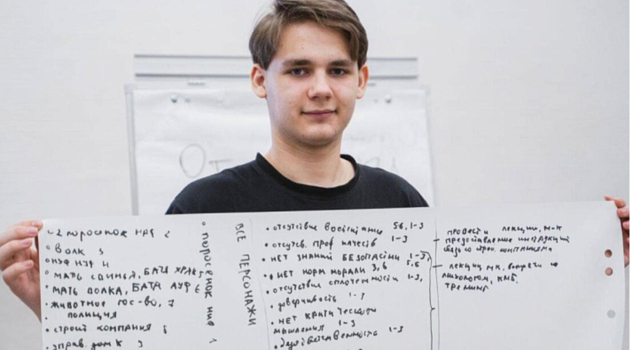 От
• 2 поросёнок НАФ 2
• ВОЛК 3
• НУФ НУФ 4
• МАТЬ СВИНЬЯ, БАТЯ ХРЯК 5
• МАТЬ ВОЛКА, БАТЯ АУФ 6
• животное гос-во, 7
полиция
• строй компания 8
• управ дом К 9
• поросёнок ниф 1
ВСЕ ПЕРСОНАЖИ
• отсутствие воспитания 5,6,1-3
• отсутсв. проф качеств 1-3
• НЕТ ЗНАНИЙ БЕЗОПАСТНОСТИ 1-3,
• НЕТ НОРМ МОРАЛИ 3,6 5,6
• отсутствие сплоченности 1-3,
• доверчивость 1-3
• НЕТ КРИТИЧЕСКОГО
мышления 1-3
• безответственность 1-3
провести лекцию, м-к
предоставление инструкций
компаниям
- лекции, мк, встречи с
психологом, КМБ,
тренинг